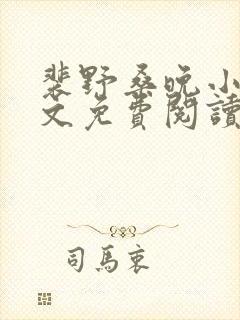 裴野桑晚小
文免費閱讀
司馬衷